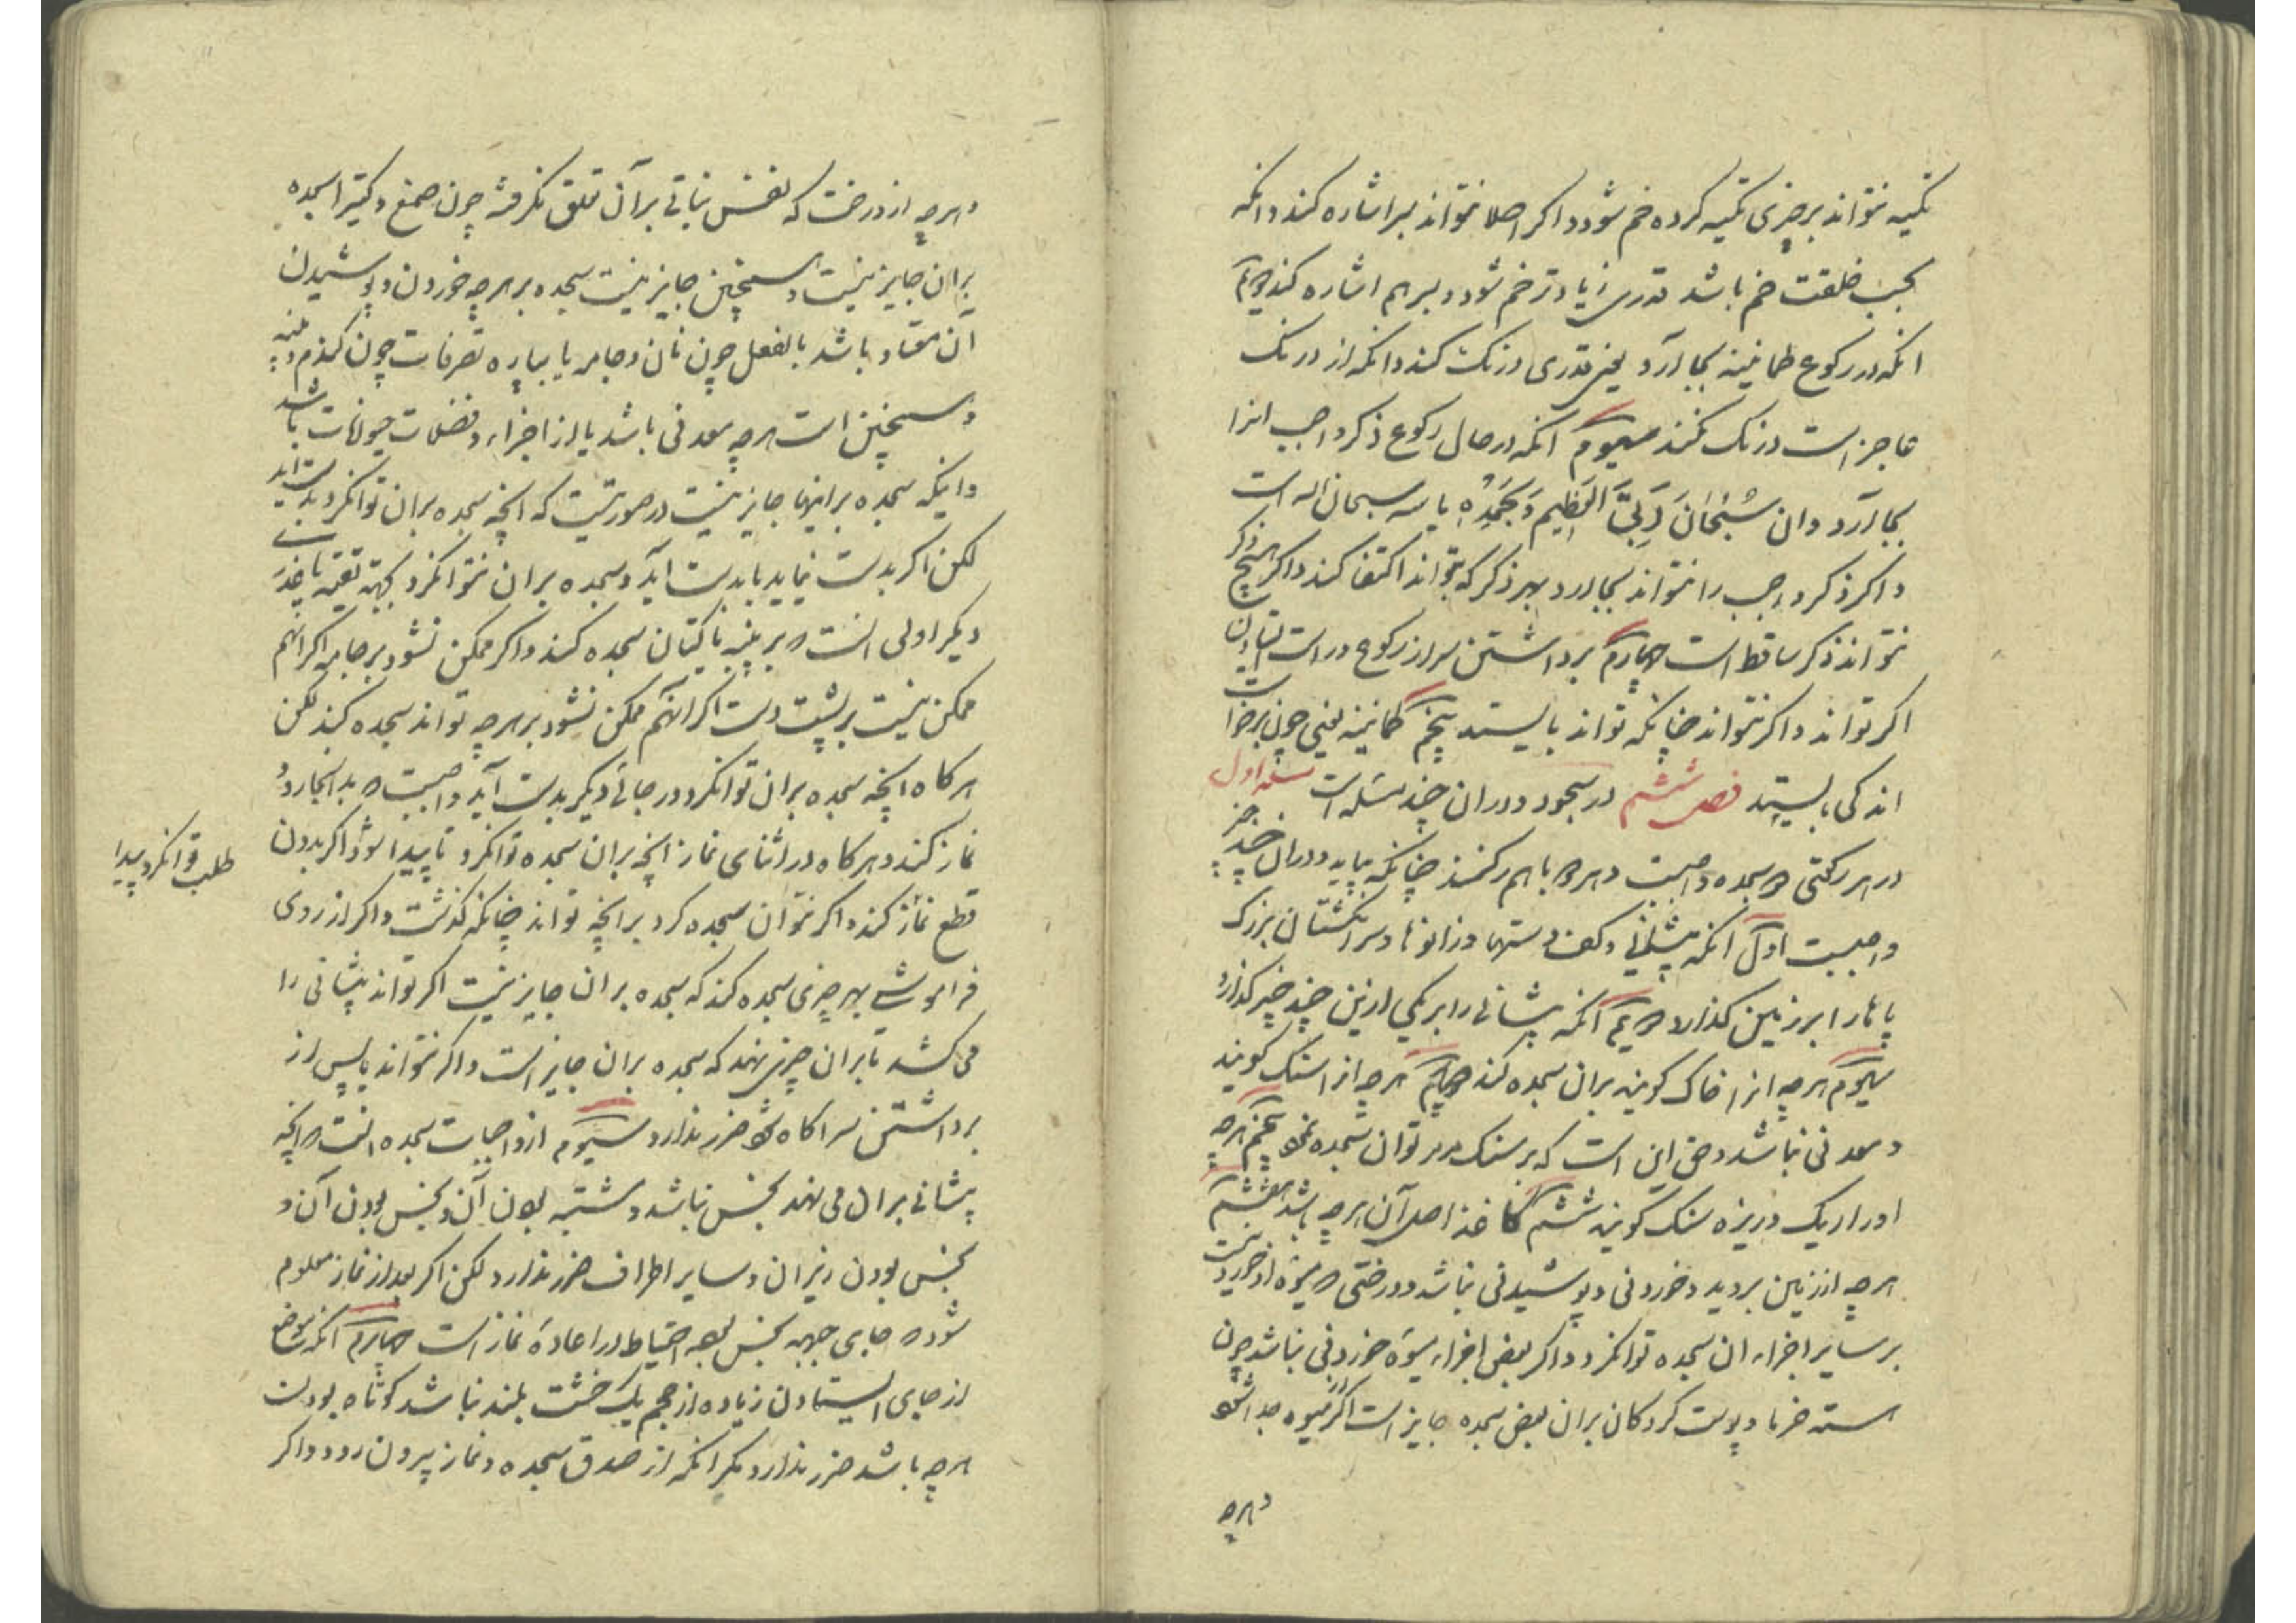 تکیه نتواند بر چیزی تکیه کرده خم شود و اکر اصلا نتواند بسر اشاره کند و انکه
بحسب خلقت خم باشد قدری زیادتر خم شود و بسر هم اشاره کند دویم
انکه در رکوع طمانینه بجا آرد یعنی قدری درنک کند و انکه از درنک
عاجز است درنک نکند سیوم انکه در حال رکوع ذکر واجب انرا
بجا آرد و ان سُبْحَانَ رَبِّیَ الْعَظِیمِ وَ بِحَمْدِهِ یا سه سبحان الله است
و اکر ذکر واجب را نتواند بجا آرد بهر ذکر که بتواند اکتفا کند و اکر هیچ ذکر
نتواند ذکر ساقط است چهارم برداشتن سر از رکوع و راست ایستادن
اکر تواند و اکر نتواند چنانکه تواند بایستد پنجم طمانینه یعنی چون برخواست
اندکی بایستد فصل ششم در سجود و در ان چند مسئله است مسئله اول
در هر رکعتی دو سجده واجبست و هر دو با هم رکنند چنانکه بیاید و در ان چند چیز
واجبست اول انکه پیشانی و کف دستها و زانوها و سر انکشتان بزرک
پاها را بر زمین کذارد دویم انکه پیشانی را بر یکی از این چند چیز کذارد
سیوم هر چه انرا خاک کویند بران سجده کند چهارم هر چه انرا سنک کویند
و معدنی نباشد و حق این است که بر سنک مرمر توان سجده نمود پنجم هر چه
او را ریک و ریزه سنک کویند ششم کاغذ اصل آن هر چه باشد هفتم
هر چه از زمین بروید و خوردنی و پوشیدنی نباشد و درختی که میوه او خوردنیست
بر سایر اجزاء ان سجده توانکرد و اکر بعض اجزاء میوه خوردنی نباشد چون
هسته خرما و پوست کردکان بران بعض سجده جایز است اکر از میوه جدا شود
و هر چه
و هر چه از درخت که نفس نباتی بر آن تعلق نکرفته چون صمغ و کتیرا سجده
بران جایز نیست و همچنین جایز نیست سجده بر هر چه خوردن و پوشیدن
ان معتاد باشد بالفعل چون نان و جامه یا بپاره تصرفات چون کندم و پنبه
و همچنین است هر چه معدنی باشد یا از اجزاء و فضلات حیوانات باشد
و اینکه سجده بر اینها جایز نیست در صورتیست که انچه سجده بران توانکرد بدست اید
لکن اکر بدست نیاید یا بدست آید و سجده بران نتوانکرد بجهة تقیه یا عذری
دیکر اولی انست که بر پنبه یا کتان سجده کند و اکر ممکن نشود بر جامه اکر انهم
ممکن نیست بر پشت دست اکر آنهم ممکن نشود بر هر چه تواند سجده کند لکن
هر کاه انچه سجده بران توانکرد در جائی دیکر بدست آید واجبست که بدانجا رود
نماز کند و هر کاه در اثنای نماز انچه بران سجده توانکرد تا پیدا شود اکر بدون
طلب توانکرد پیدا
قطع نماز کند و اکر نتوان سجده کرد بر انچه تواند چنانکه کذشت و اکر از روی
فراموشی بهر چیزی سجده کند که سجده بران جایز نیست اکر تواند پیشانی را
می کشد تا بران چیزی نهد که سجده بران جایز است و اکر نتواند یا پس از
برداشتن سر اکاه شود ضرر ندارد سیوم از واجبات سجده انست که انچه
پیشانی بران می نهد نجس نباشد و مشتبه بودن آن و نجس بودن آن و
نجس بودن زیر ان و سایر اطراف ضرر ندارد لکن اکر بعد از نماز معلوم
شود که جای جبهه نجس بوده احتیاط در اعادهٔ نماز است چهارم انکه موضع
از جای ایستادن زیاده از حجم یک خشت بلند نباشد کوتاه بودنت
هر چه باشد ضرر ندارد مکر انکه از صدق سجده و نماز بیرون رود و اکر